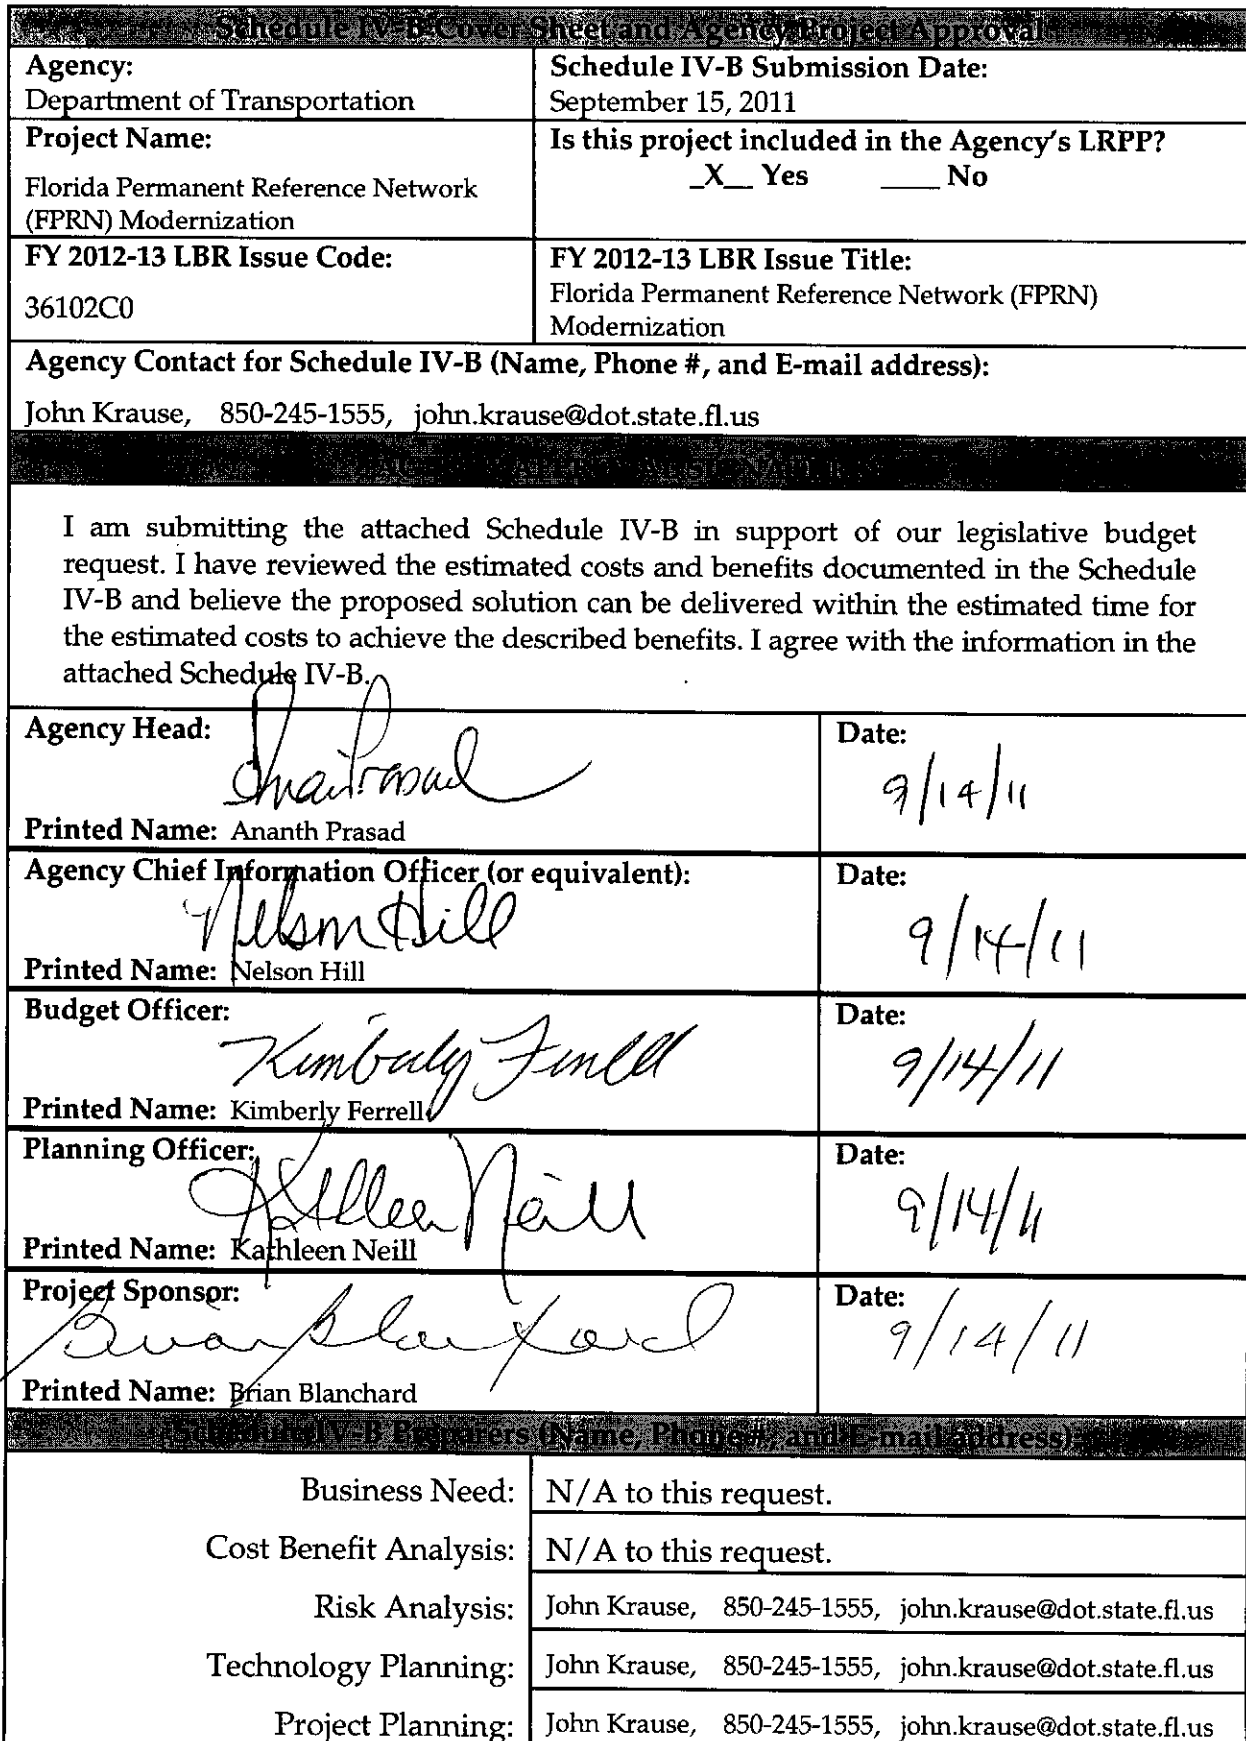 Schedule IV-B Cover Sheet and Agency Project Approval
Agency:
Department of Transportation
Schedule IV-B Submission Date:
September 15, 2011
Project Name:
Florida Permanent Reference Network
(FPRN) Modernization
Is this project included in the Agency's LRPP?
_X__ Yes ____ No
FY 2012-13 LBR Issue Code:
36102C0
FY 2012-13 LBR Issue Title:
Florida Permanent Reference Network (FPRN)
Modernization
Agency Contact for Schedule IV-B (Name, Phone #, and E-mail address):
John Krause, 850-245-1555, john.krause@dot.state.fl.us
I am submitting the attached Schedule IV-B in support of our legislative budget
request. I have reviewed the estimated costs and benefits documented in the Schedule
IV-B and believe the proposed solution can be delivered within the estimated time for
the estimated costs to achieve the described benefits. I agree with the information in the
attached Schedule IV-B.
Agency Head:
Date:
9/14/11
Printed Name: Ananth Prasad
Agency Chief Information Officer (or equivalent):
Nelson Hill
Date:
9/14/11
Printed Name: Nelson Hill
Budget Officer:
Kimberly Ferrell
Date:
9/14/11
Printed Name: Kimberly Ferrell
Planning Officer:
Kathleen Neill
Date:
9/14/11
Printed Name: Kathleen Neill
Project Sponsor:
Brian Blanchard
Date:
9/14/11
Printed Name: Brian Blanchard
Schedule IV-B Preparers (Name, Phone #, and E-mail address):
Business Need: N/A to this request.
Cost Benefit Analysis: N/A to this request.
Risk Analysis: John Krause, 850-245-1555, john.krause@dot.state.fl.us
Technology Planning: John Krause, 850-245-1555, john.krause@dot.state.fl.us
Project Planning: John Krause, 850-245-1555, john.krause@dot.state.fl.us